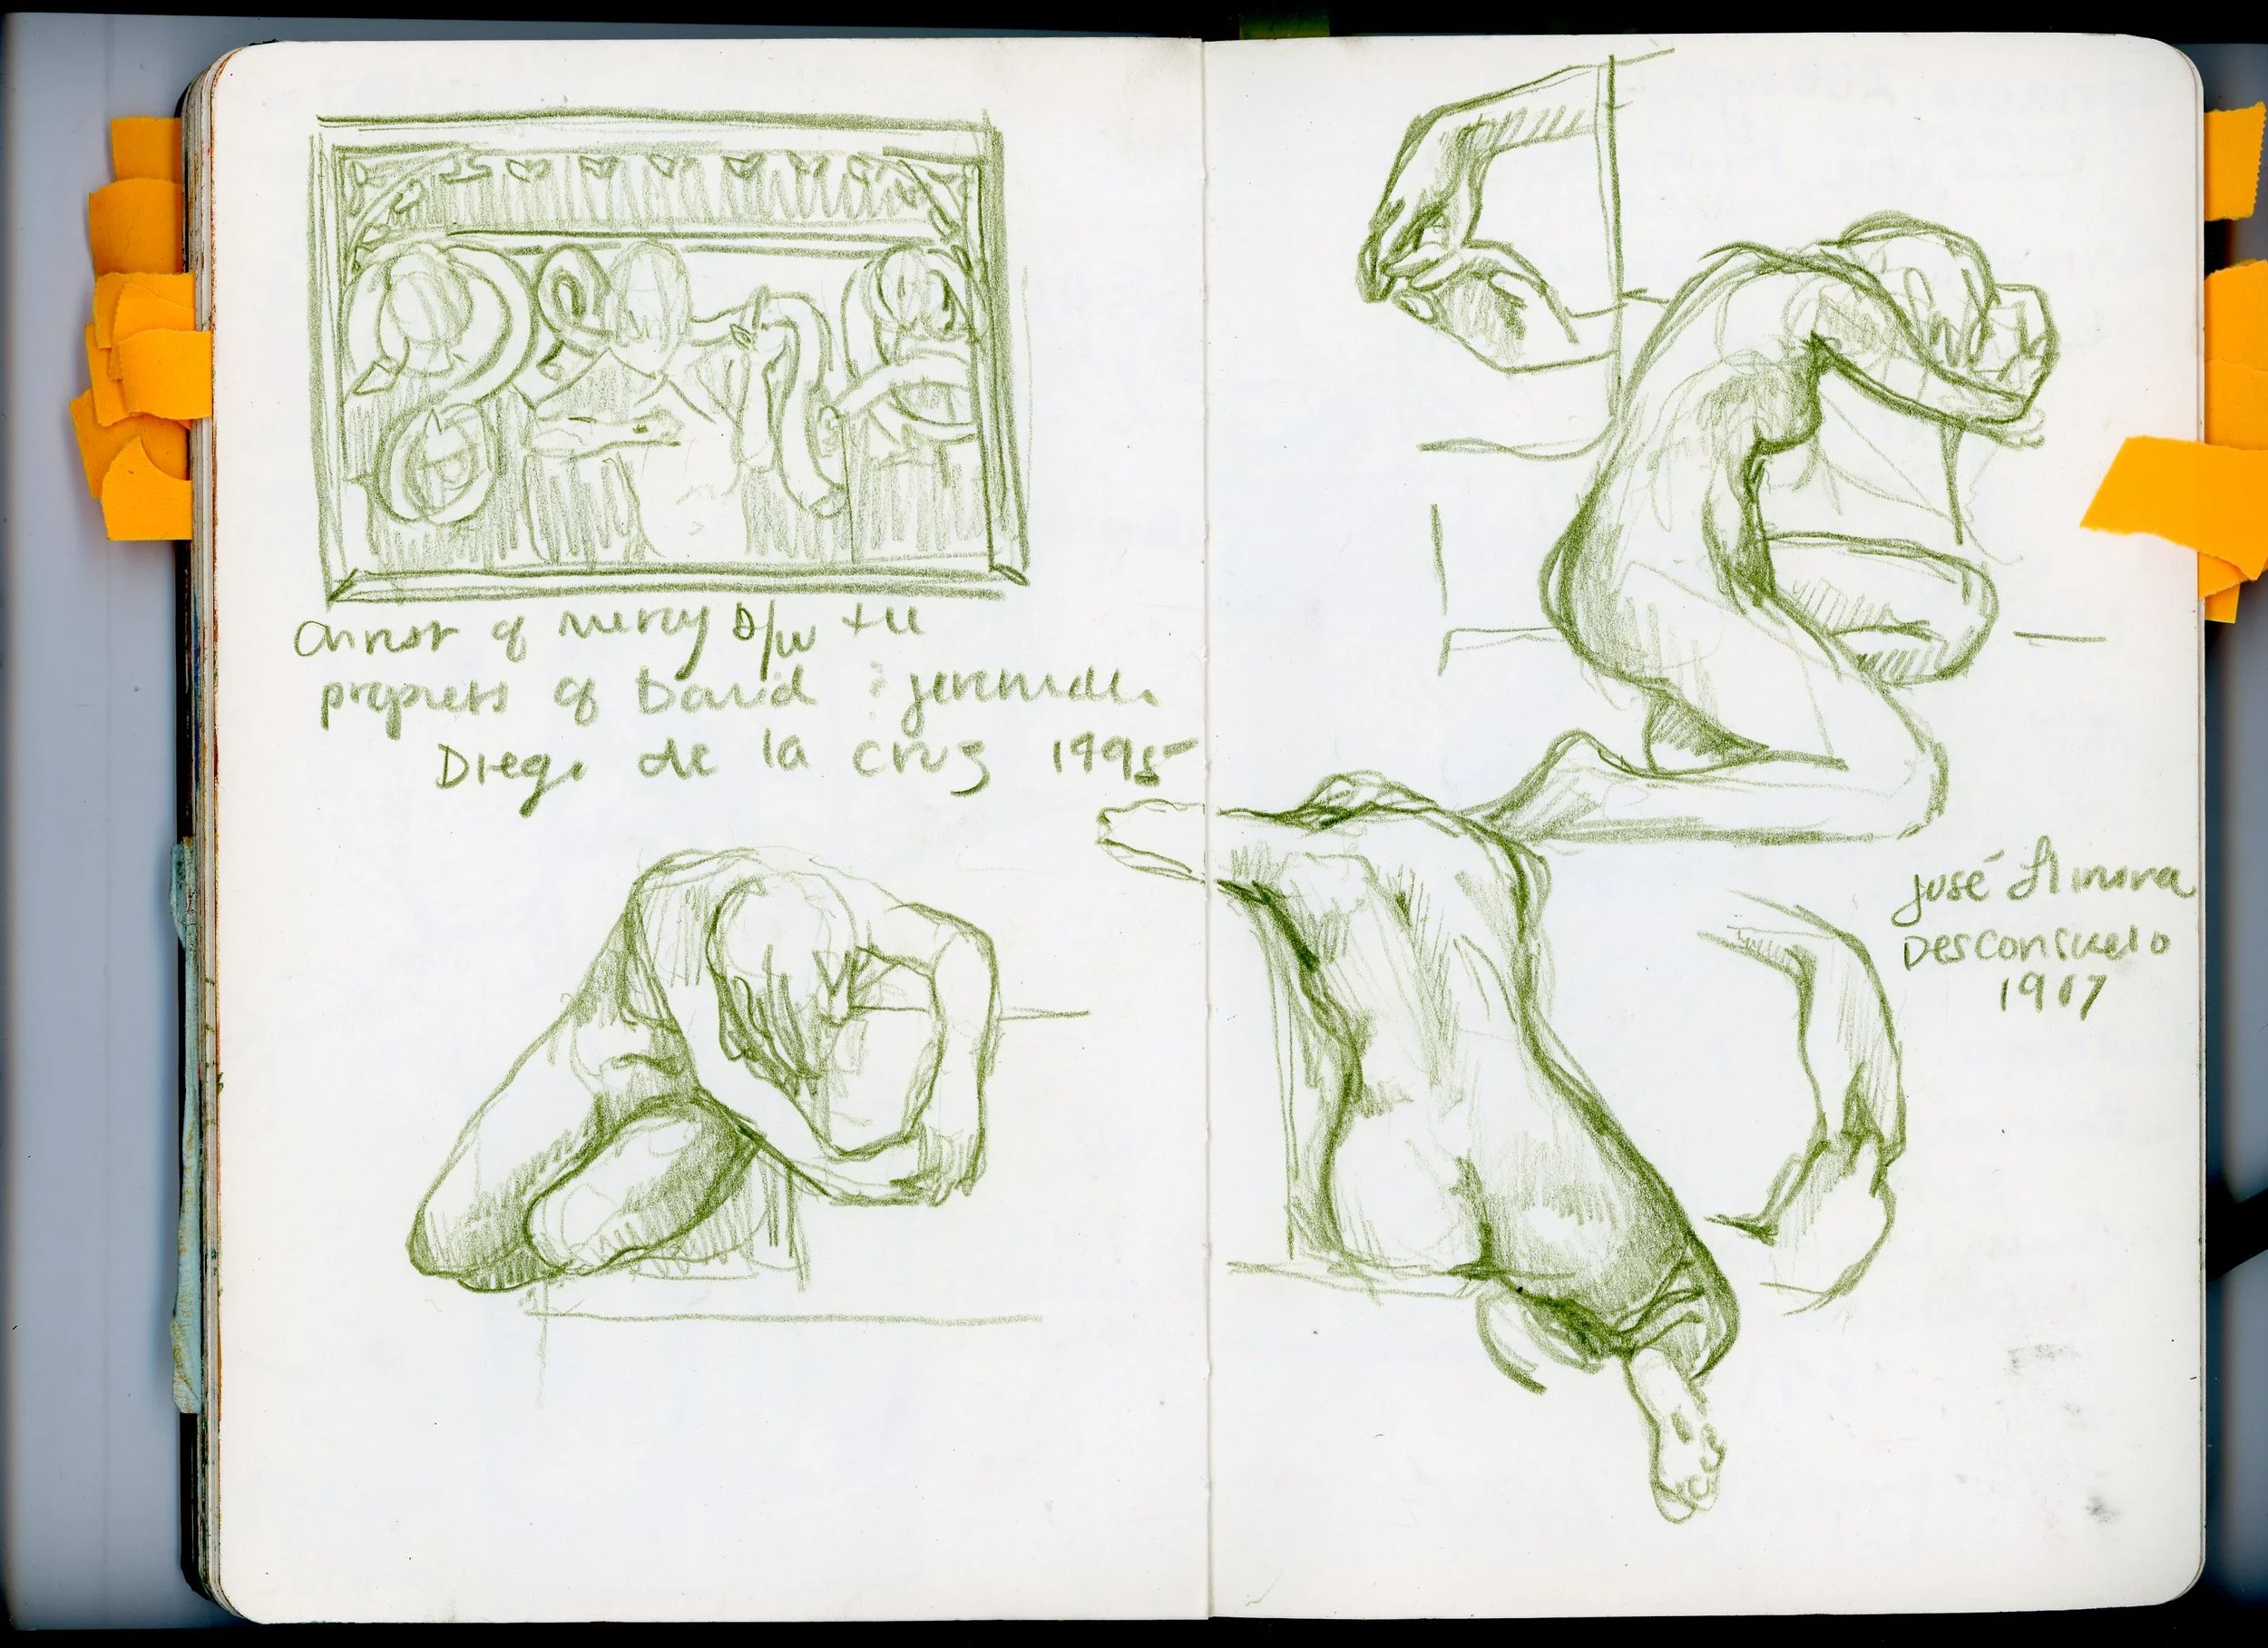 Christ of mercy b/w the
prophets of David & Jeremiah
Diego de la Cruz 1495
José Llimona
Desconsuelo
1907